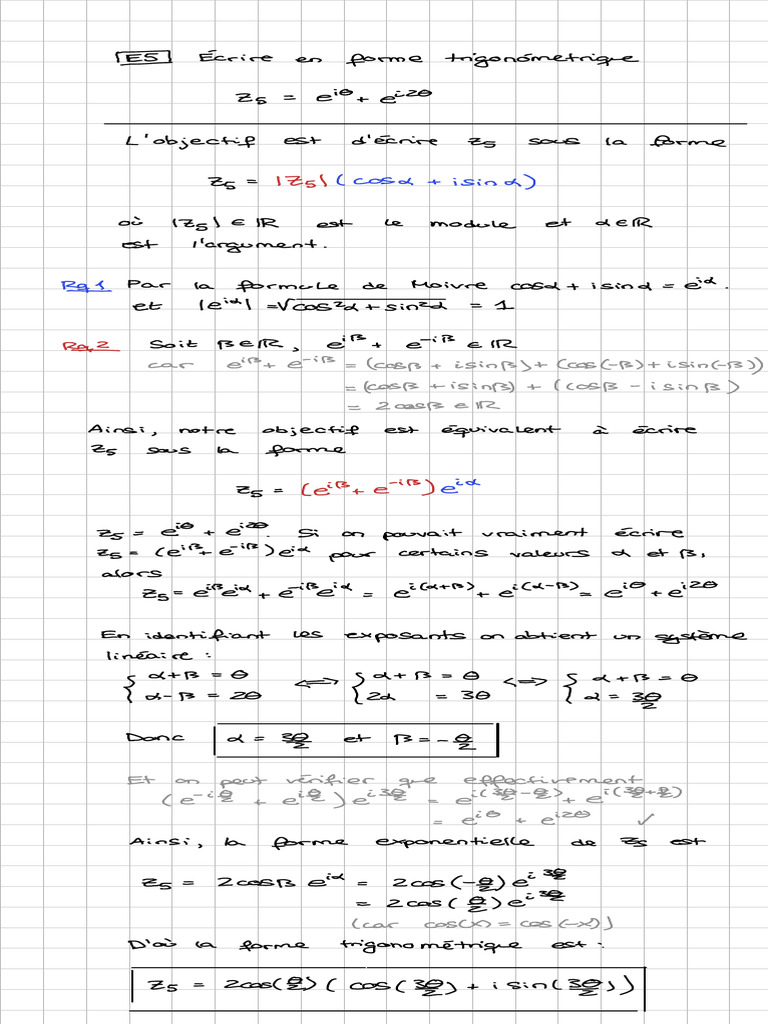 E5 Écrire en forme trigonométrique
z₅ = e^{iθ} + e^{i2θ}
L'objectif est d'écrire z₅ sous la forme
z₅ = |z₅| (cosα + isinα)
où |z₅| ∈ ℝ est le module et α∈ℝ
est l'argument.
Rq1 Par la formule de Moivre cosα + isinα = e^{iα}.
et |e^{iα}| = √(cos²α + sin²α) = 1
Rq2 Soit β∈ℝ, e^{iβ} + e^{-iβ} ∈ ℝ
car e^{iβ} + e^{-iβ} = (cosβ + isinβ) + (cos(-β) + isin(-β))
= (cosβ + isinβ) + (cosβ - isinβ)
= 2cosβ ∈ ℝ
Ainsi, notre objectif est équivalent à écrire
z₅ sous la forme
z₅ = (e^{iβ} + e^{-iβ}) e^{iα}
z₅ = e^{iθ} + e^{i2θ}. Si on pouvait vraiment écrire
z₅ = (e^{iβ} + e^{-iβ}) e^{iα} pour certains valeurs α et β,
alors
z₅ = e^{iβ}e^{iα} + e^{-iβ}e^{iα} = e^{i(α+β)} + e^{i(α-β)} = e^{iθ} + e^{i2θ}
En identifiant les exposants on obtient un système
linéaire :
{ α+β = θ ⟺ { α+β = θ ⟺ { α+β = θ
{ α-β = 2θ { 2α = 3θ { α = 3θ/2
Donc α = 3θ/2 et β = -θ/2
Et on peut vérifier que effectivement
(e^{-iθ/2} + e^{iθ/2}) e^{i3θ/2} = e^{i(3θ/2 - θ/2)} + e^{i(3θ/2 + θ/2)}
= e^{iθ} + e^{i2θ} ✓
Ainsi, la forme exponentielle de z₅ est
z₅ = 2cosβ e^{iα} = 2cos(-θ/2) e^{i3θ/2}
= 2cos(θ/2) e^{i3θ/2}
(car cos(x) = cos(-x))
D'où la forme trigonométrique est :
z₅ = 2cos(θ/2) (cos(3θ/2) + isin(3θ/2))